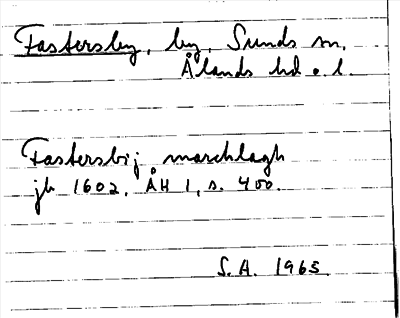 Fastersby, by, Sunds sn,
Ålands hd o. l.
Fastersbij marchlagh
jb 1602, ÅH 1, s. 400.
S. A. 1963